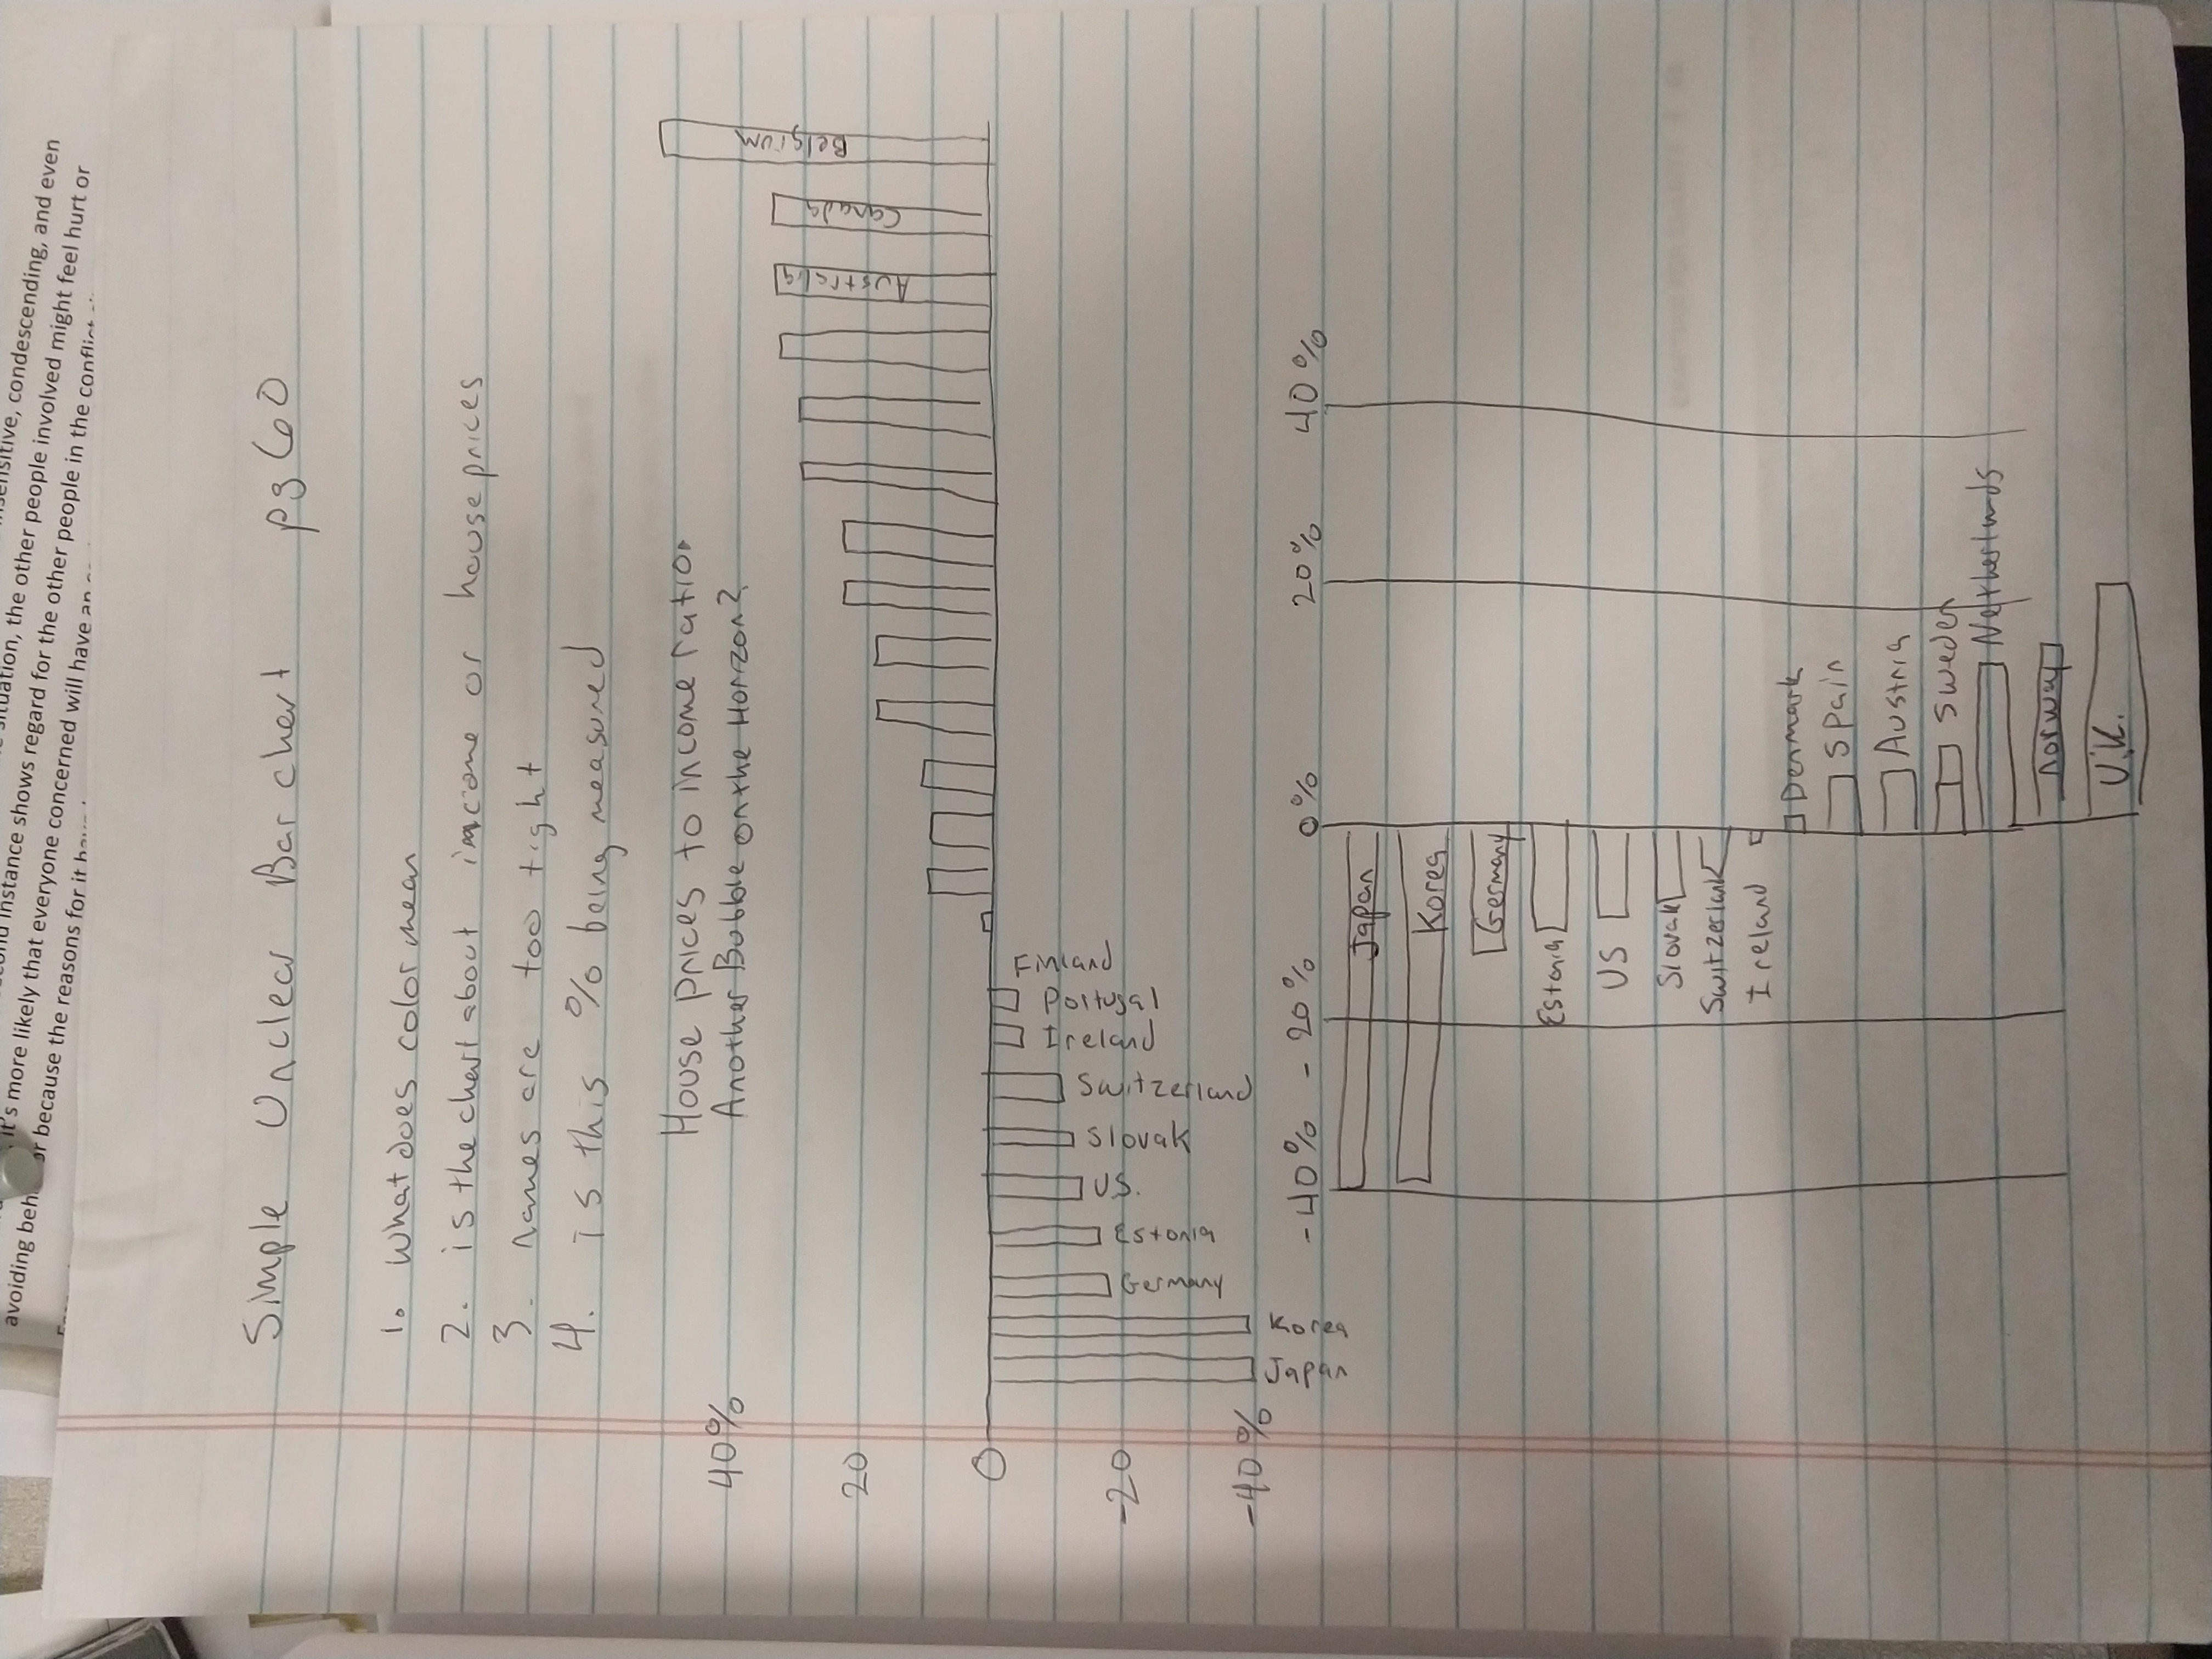 situation, the other people involved might feel hurt or
instance shows regard for the other people in the conflict
It's more likely that everyone concerned will have an
avoiding because the reasons for it
condescending, and even
Simple Unclear Bar chart pg 60
1. What does color mean
2. is the chart about income or house prices
3. names are too tight
4. is this % being measured
House prices to income ratio
Another Bubble on the Horizon?
40%
20
0
-20
-40%
Japan
Korea
Germany
Estonia
U.S.
Slovak
Switzerland
Ireland
Portugal
Finland
Australia
Canada
Belgium
-40% -20% 0% 20% 40%
Japan
Korea
Germany
Estonia
US
Slovak
Switzerland
Ireland
Denmark
Spain
Austria
Sweden
Netherlands
Norway
U.K.